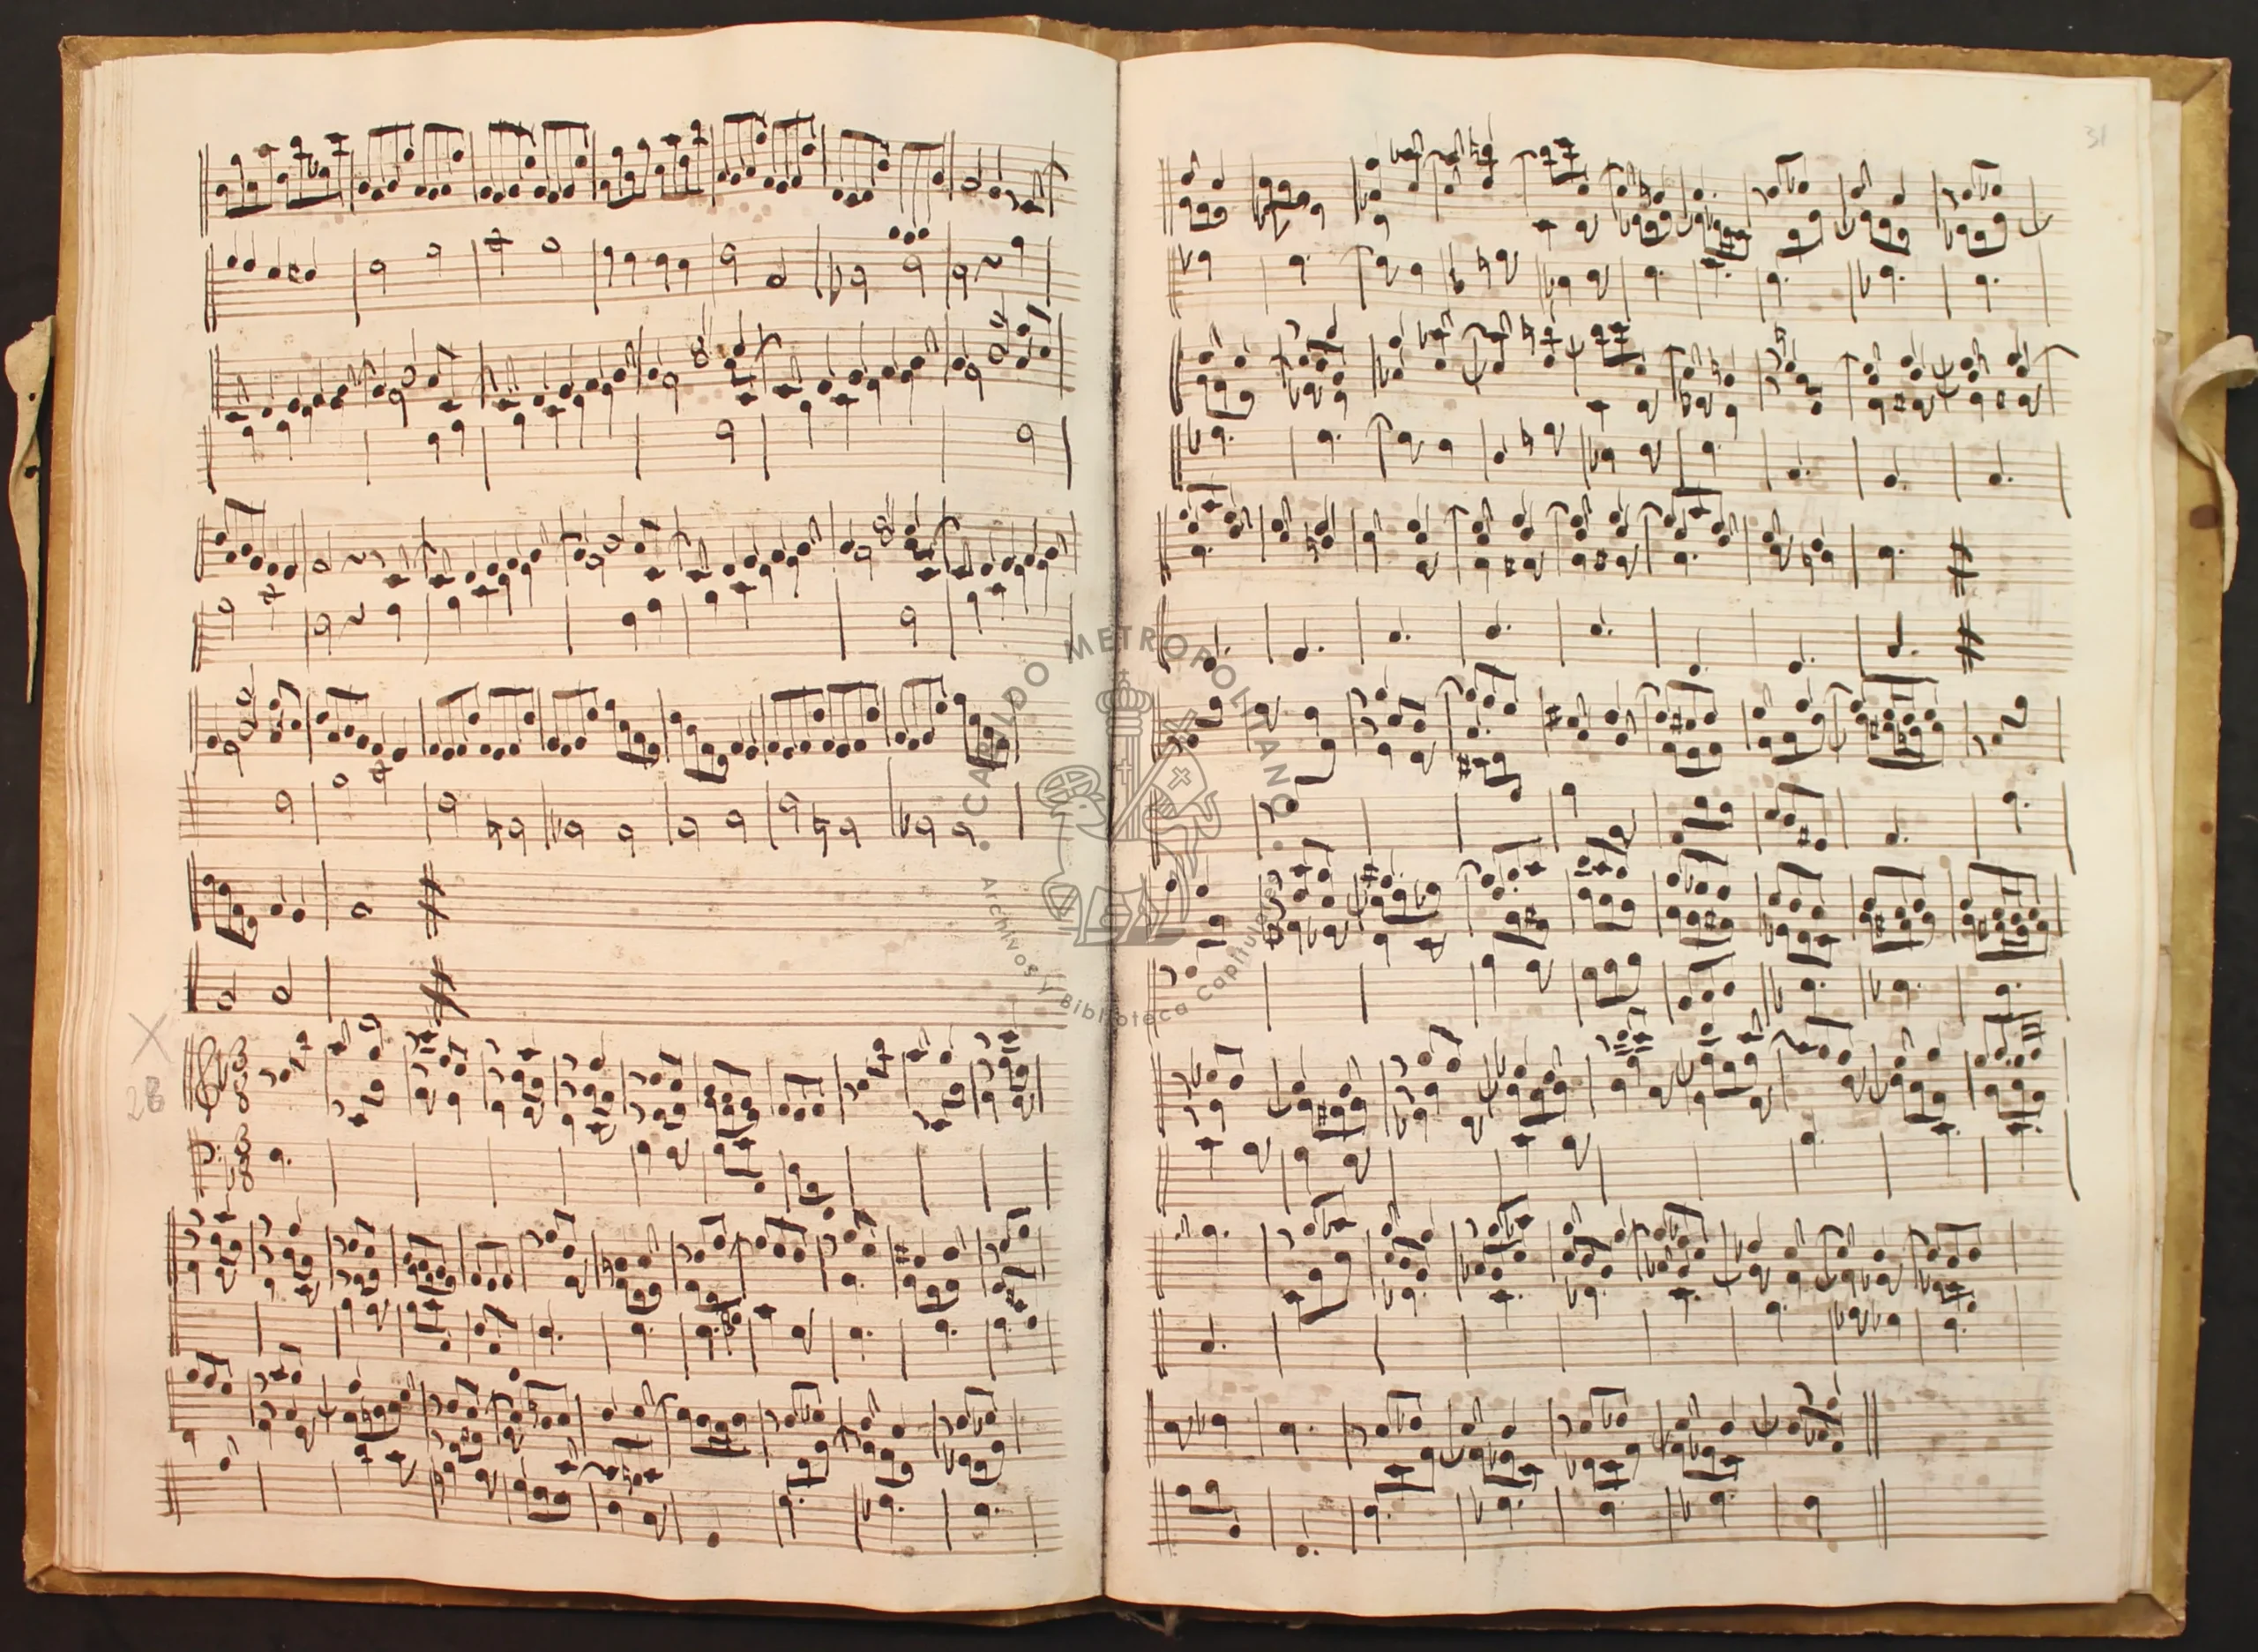 31
28
· CABILDO METROPOLITANO ·
Archivos y Biblioteca Capitulares